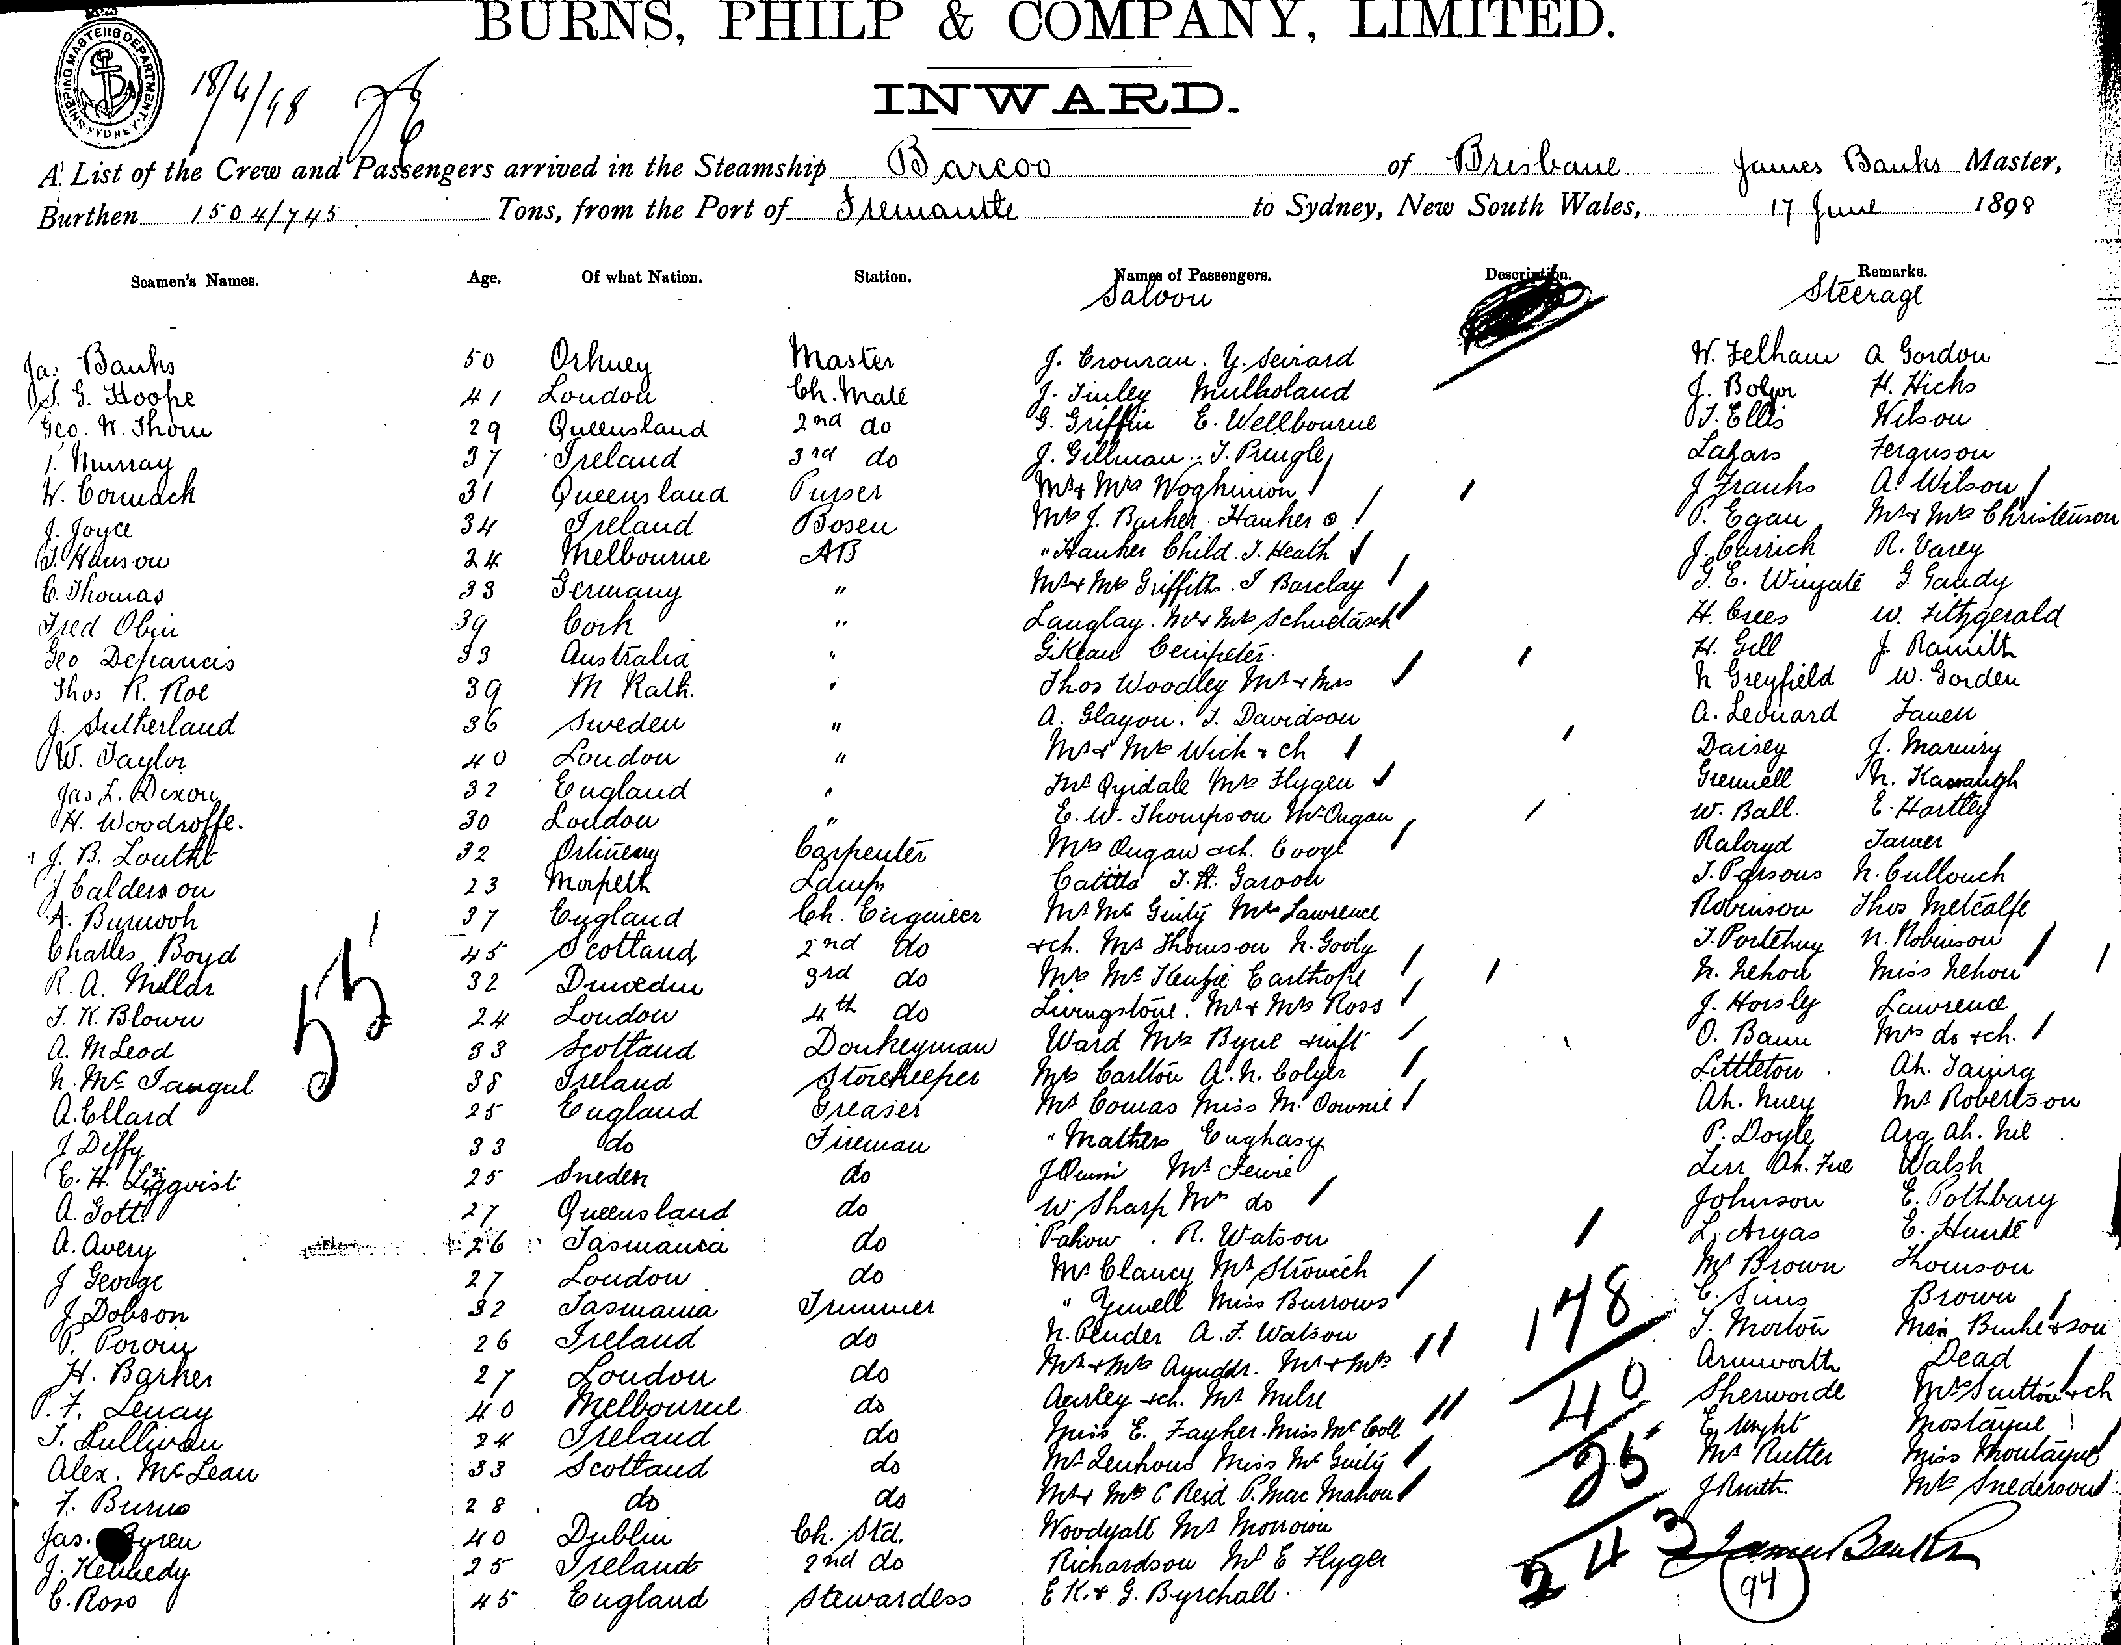 BURNS, PHILP & COMPANY, LIMITED.
INWARD.
SHIPPING MASTERS DEPARTMENT SYDNEY
18/6/98
A List of the Crew and Passengers arrived in the Steamship Barcoo of Brisbane James Banks Master,
Burthen 1504/745 Tons, from the Port of Fremantle to Sydney, New South Wales, 17 June 1898
Seamen's Names. Age. Of what Nation. Station. Names of Passengers. Description. Remarks.
Saloon Steerage
Jas Banks 50 Orkney Master J. Cronran. Y. Seirard W. Felham A Gordon
T. G. Hoope 41 London Ch. Mate J. Finley Mulholand J. Bolger H. Hicks
Geo. W. Thom 29 Queensland 2nd do G. Griffin E. Wellbourne T. Ellis Wilson
T. Murray 37 Ireland 3rd do J. Gillman. T. Pringle Lazars Ferguson
W. Cormack 31 Queensland Purser Mr & Mrs Woghinion J Franks A. Wilson
J. Joyce 34 Ireland Bosen Mrs J. Barker. Hanker P. Egan Mr & Mrs Christenson
T. Hanson 24 Melbourne AB " Hanker Child. T. Heath J. Carrick R. Varey
C. Thomas 33 Germany " Mr & Mrs Griffith. J Barclay G. E. Wingate G Gandy
Fred Obin 39 Cork " Langlay. Mr & Mrs H. Crees W. Fitzgerald
Geo Defrancis 33 Australia " G. Kean H. Gill J.
Thos R. Roe 39 M Rath. " Thos Woodley Mr & Mrs N Greyfield W. Gorden
J. Sutherland 36 Sweden " A. Glayon. T. Davidson A. Leonard
W. Taylor 40 London " Mr & Mrs Wick & ch Daisey J.
Jas L. Dixon 32 England " Mr Mrs Flygen Grenwell N. Kavanagh
H. Woodroffe. 30 London " E. W. Thompson Mr Ougan W. Ball. E. Hartley
J. B. Louthe 32 Orkney Carpenter Mrs Ougan & ch. Tarver
J Calderson 23 Morpeth Lamps T. H. Garoon T. Parsons N. Cullouch
A. Burwooh 37 England Ch. Engineer Mr Mc Ginty Mrs Lawrence Robinson Thos Metcalfe
Charles Boyd 45 Scotland 2nd do & ch. Mr Thomson N. Gooly N. Robinson
R. A. Millar 32 Dunedin 3rd do Mrs Mc Kenzie Earthope N. Nehou Miss Nehou
T. K. Blown 24 London 4th do Livingstone. Mr & Mrs Ross J. Horsly Lawrence
A. McLeod 33 Scotland Donkeyman Ward Mrs Byne & inft O. Bann Mrs do & ch.
N. Mc Tangul 38 Ireland Storekeeper Mrs Carlton A. N. Colyer Littleton. Ah.
A. Ellard 25 England Greaser Mr Comas Miss M. Downie Ah. Nuey Mr Robertson
J Deffy 33 do Fireman " Mathers P. Doyle Ah.
E. H. Ligqvist 25 Sweden do J Quinn Mr Ah. Fue Walsh
A. Gott 27 Queensland do W Sharp Mrs do Johnson E. Pothbary
A. Avery 26 Tasmania do Pahow. R. Watson L. Aryas E. Hunte
J George 27 London do Mr Clancy Mr Strovich Mr Brown Thomson
J Dobson 32 Tasmania Trimmer " Yewell Miss Burrows C. Sims Brown
P. 26 Ireland do N. Pender A. F. Watson T. Morton
H. Barker 27 London do Mr & Mrs Mr & Mrs Armworth Dead
P. F. Lenay 40 Melbourne do Aursley & ch. Mr Milse Sherworde Mrs Sutton & ch
T. Sullivan 24 Ireland do Miss E. Fayher. Miss Mc Coll E. Wright Mostayne
Alex. McLean 33 Scotland do Mr Lenhous Miss Mc Ginty Mr Rutter Miss Montayne
F. Burns 28 do do Mr & Mrs C Reid P. Mac Mahon Mrs Snederson
Jas. Byren 40 Dublin Ch. Std. Woodyatt Mr Morrown
J. Kennedy 25 Ireland 2nd do Richardson Mr E Flyger
C. Ross 45 England Stewardess E K. & G. Byrchall.
55
148
40
25
243
James Banks
94